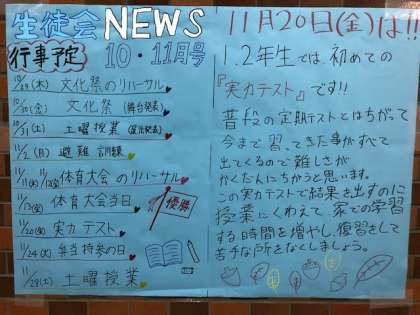 生徒会 NEWS
行事予定 10・11月号
10/29(木) 文化祭のリハーサル
10/30(金) 文化祭(舞台発表)
10/31(土) 土曜授業
11/2(月) 避難訓練
11/11(水) 11/12(金) 体育大会のリハーサル
11/13(金) 体育大会当日
優勝
11/20(金) 実力テスト
11/24(火) 弁当持参の日
11/28(土) 土曜授業
11月20日(金)は!!
1.2年生では、初めての
『実力テスト』です!!
普段の定期テストとはちがって
今まで習ってきた事がすべて
出てくるので難しさが
かくだんにちがうと思います。
この実力テストで結果を出すのに
授業にくわえて、家での学習
する時間を増やし、復習をして
苦手な所をなくしましょう。